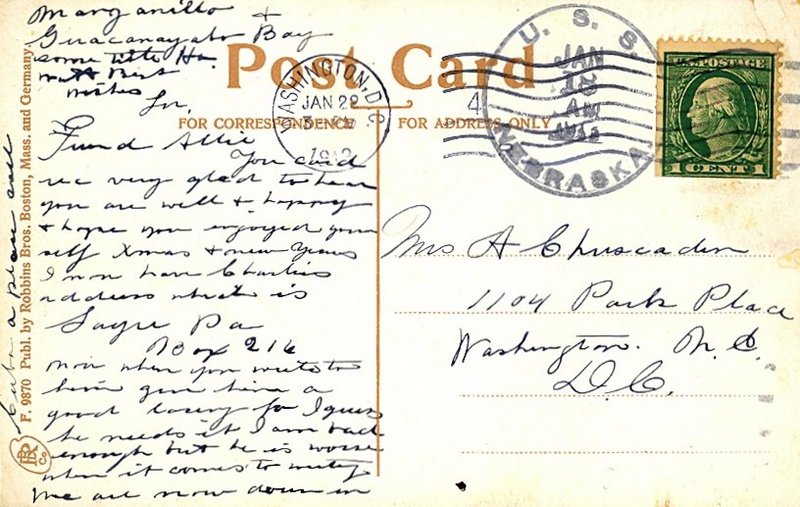 Post Card
FOR CORRESPONDENCE
FOR ADDRESS ONLY
WASHINGTON, D.C.
JAN 22
3
U. S. S.
NEBRASKA
JAN
15
AM
4
U.S. POSTAGE
1 CENT 1
Friend Allie
Your card
rec very glad to hear
you are well & happy
& hope you enjoyed your
self Xmas & new Years
I now have Charlies
address which is
Sayre Pa
Box 216
now when you write to
him give him a
good lacing for I guess
he needs it I am bad
enough but he is worse
when it comes to writing
We are now down in
Cuba a place call
Manzanillo &
Guacanayabo Bay
some title Ha.
with Best
wishes
Mrs A Chuscaden
1104 Park Place
Washington. N. E.
D.C.
F. 9870 Publ. by Robbins Bros. Boston, Mass. and Germany.
Co